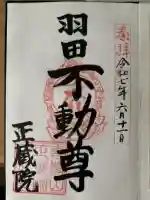 奉拝
令和七年六月十一日
羽田
不動尊
正蔵院